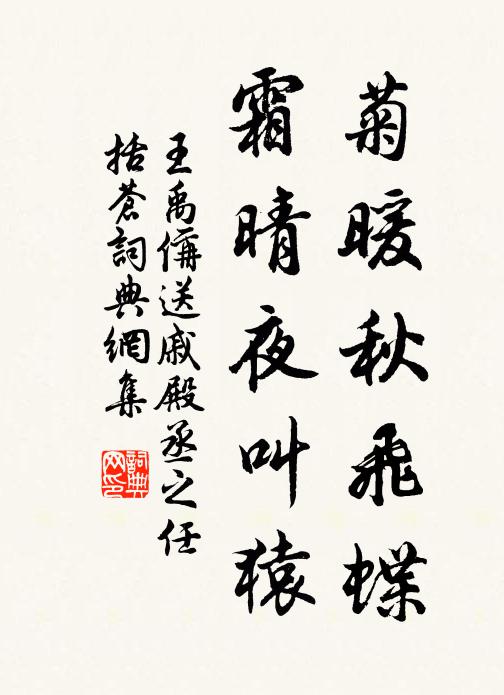 菊暖秋飛蝶
霜晴夜叫猿
王禹偁送戚殿丞之任
括蒼詞典網集
詞典网印